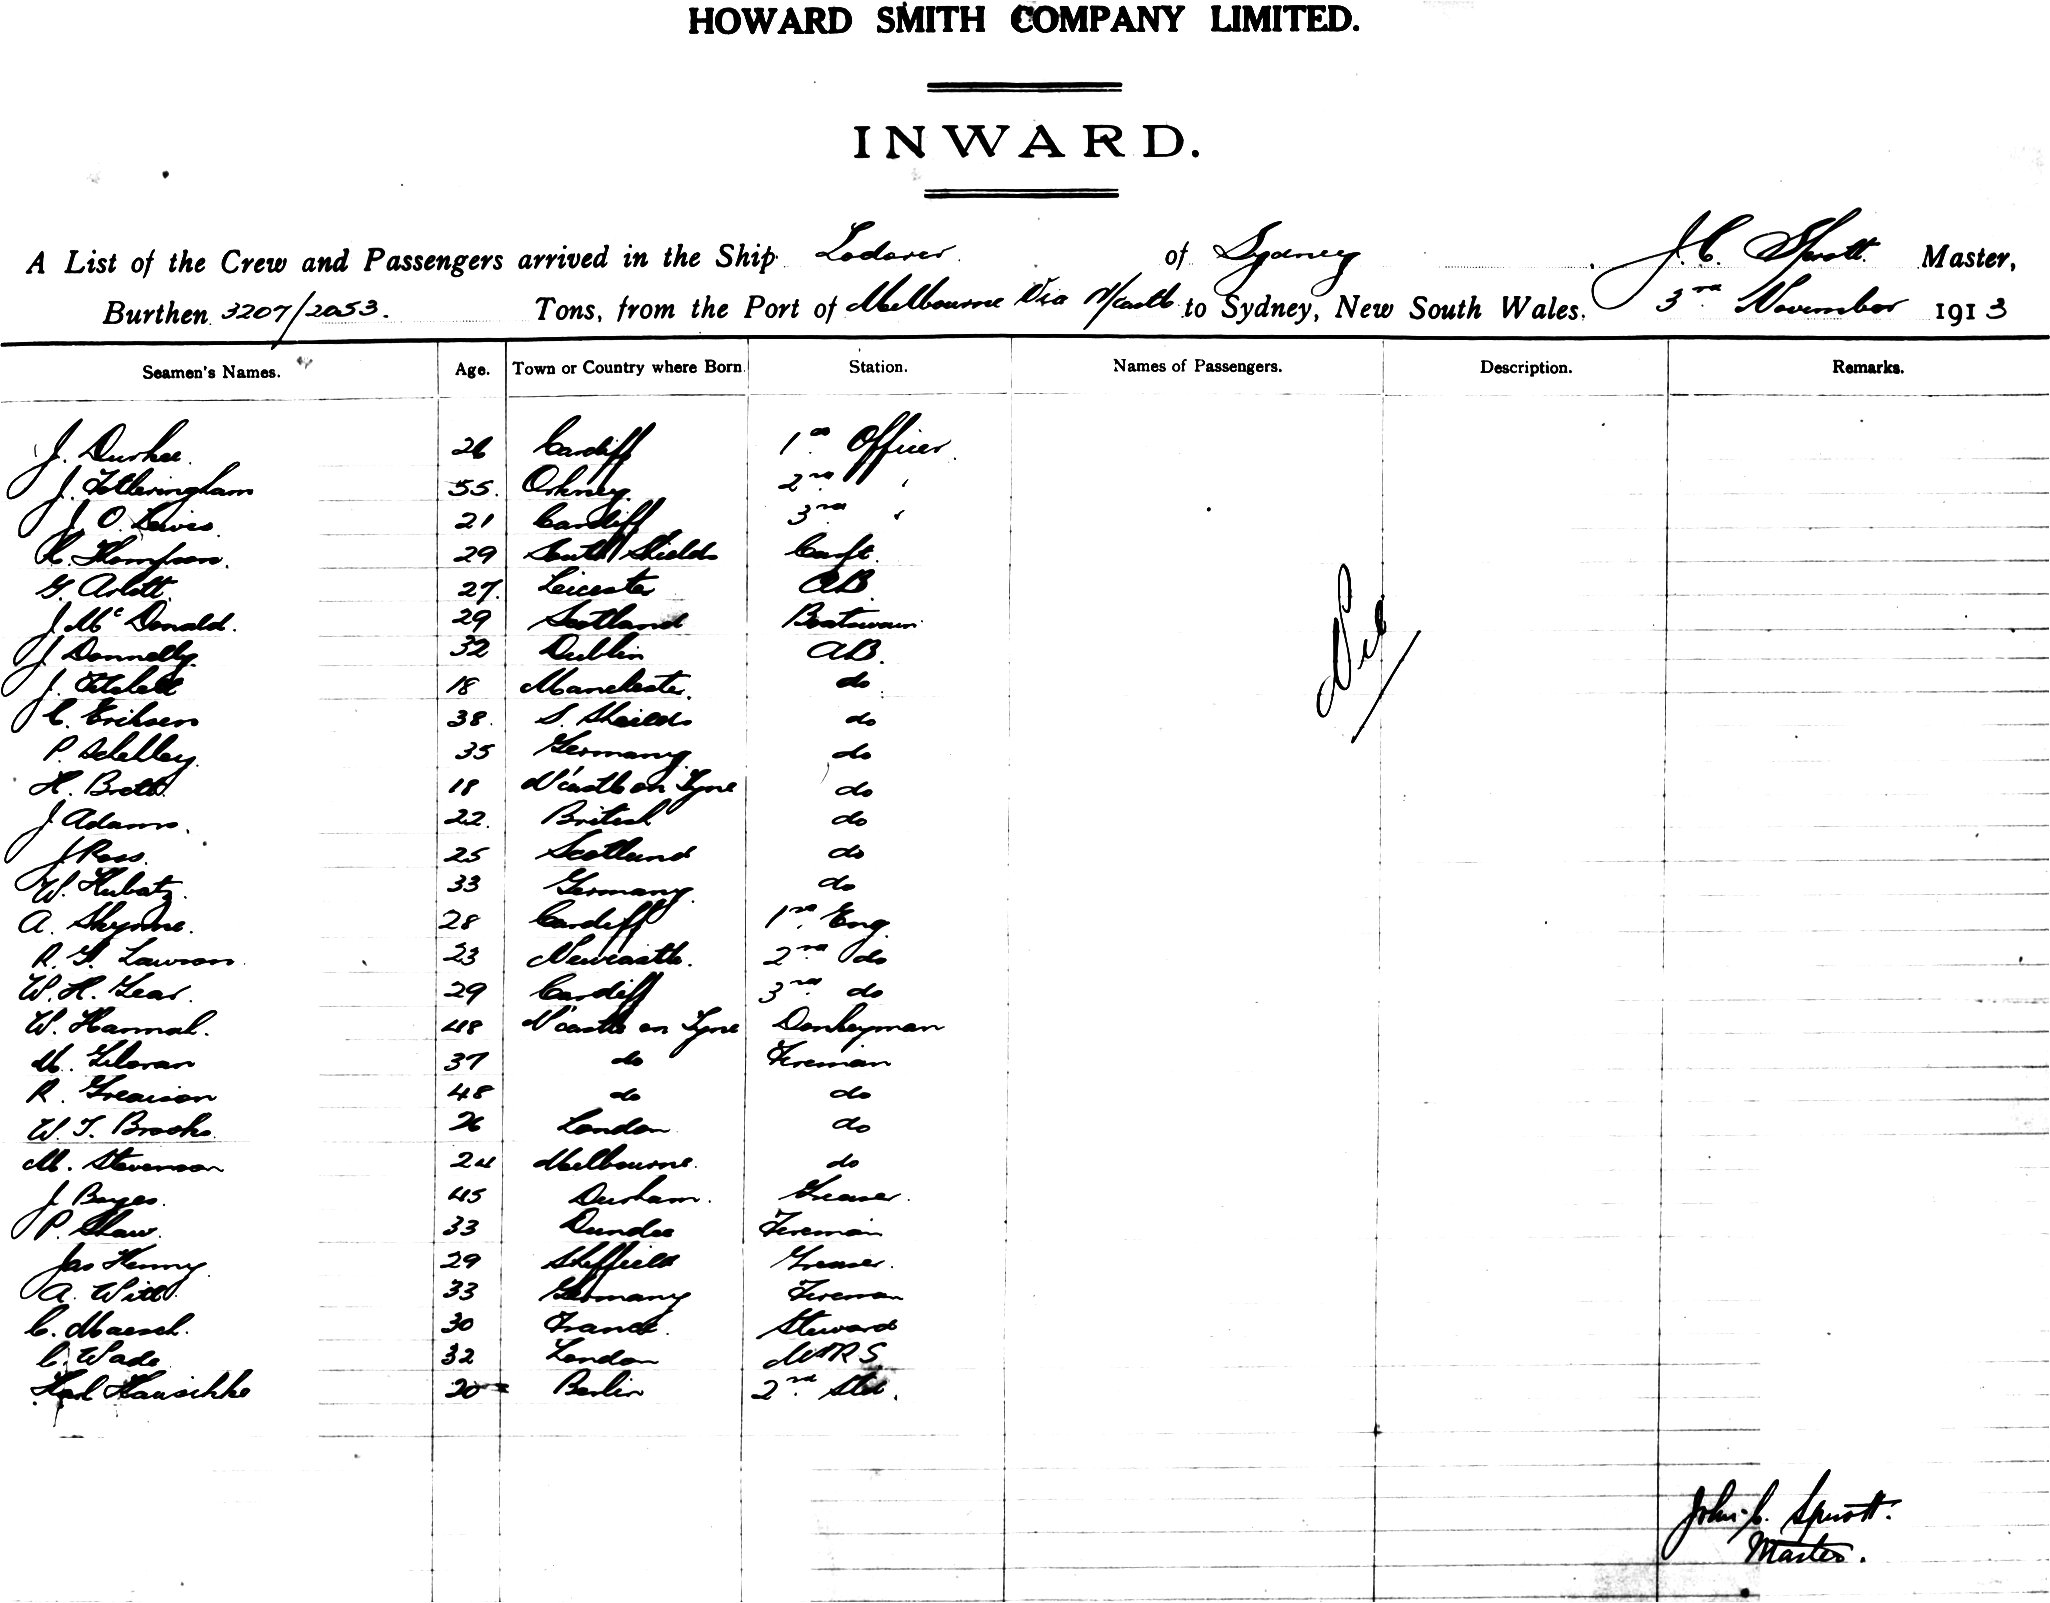 HOWARD SMITH COMPANY LIMITED.
INWARD.
A List of the Crew and Passengers arrived in the Ship Lodorer of Sydney J. C. Sprott Master,
Burthen 3207/2053. Tons, from the Port of Melbourne Via N/castle to Sydney, New South Wales. 3rd November 1913
Seamen's Names. Age. Town or Country where Born. Station. Names of Passengers. Description. Remarks.
J. Durkee. 26 Cardiff 1st Officer.
J. Fotheringham 55. Orkney. 2nd "
J. O. Lewis. 21 Cardiff 3rd "
R. Thompson. 29 South Shields Carpt.
G. Arlott. 27. Leicester AB.
J. McDonald. 29 Scotland Boatswain
J Donnelly. 32 Dublin AB.
J. 18 Manchester. do
C. Eriksen 38. S. Sheilds do
P. 35 Germany. do
H. Brett. 18 N'castle on Tyne do
J Adams. 22. British do
J Ross. 25 Scotland do
W. Kubatz. 33 Germany. do
A. Skyrme. 28 Cardiff 1st Eng.
R. G. Lawson. 23 Newcastle. 2nd do
W. H. Gear. 29 Cardiff 3rd do
W. Hannah. 48 N'castle on Tyne Donkeyman
M. Giloran 37 do Fireman
R. Greaison 48 do do
W. T. Brooks. 26 London do
M. Stevenson 24 Melbourne. do
J Bayes. 45 Durham. Greaser.
P. Shaw. 33 Dundee Fireman
Jas Henny. 29 Sheffield Greaser.
A. Witt. 33 Germany Fireman
C. Maesch. 30 France. Steward
C. Wade 32 London MRS
Karl Hauschke 20 Berlin 2nd Std.
Nil
John C. Sprott.
Master.